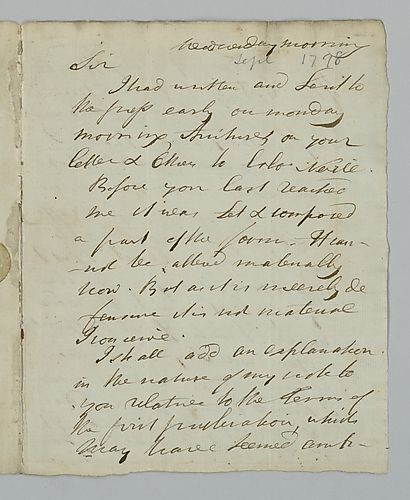 Wednesday morning
Sept 1798
Sir
I had written and Sent to
the press early on monday
morning Strictures on your
letter & Essay to Colo.
Before you last reached
me it was Set & composed
a part of the form. It can-
not be altered materially
now. But as it is merely de
fensive it is not material
I conceive.
I shall add an explanation
in the nature of my note to
you relative to the terms of
the first publication, which
may have seemed amb-